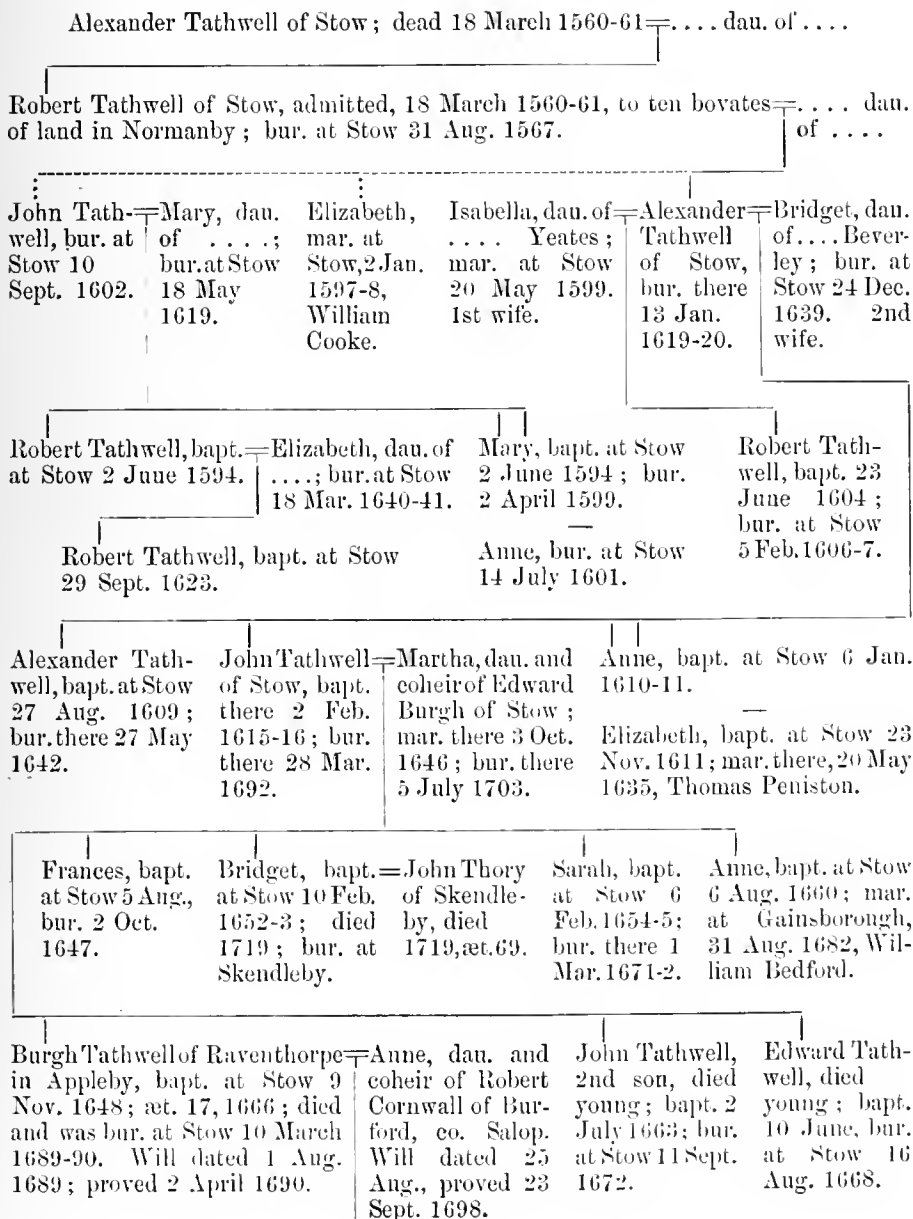 Alexander Tathwell of Stow; dead 18 March 1560-61=.... dau. of ....
Robert Tathwell of Stow, admitted, 18 March 1560-61, to ten bovates=.... dau.
of land in Normanby; bur. at Stow 31 Aug. 1567.
of ....
John Tath-
well, bur. at
Stow 10
Sept. 1602.
=Mary, dau.
of ....;
bur. at Stow
18 May
1619.
Elizabeth,
mar. at
Stow, 2 Jan.
1597-8,
William
Cooke.
Isabella, dau. of
.... Yeates;
mar. at Stow
20 May 1599.
1st wife.
=Alexander=
Tathwell
of Stow,
bur. there
13 Jan.
1619-20.
Bridget, dau.
of .... Bever-
ley; bur. at
Stow 24 Dec.
1639. 2nd
wife.
Robert Tathwell, bapt.
at Stow 2 June 1594.
=Elizabeth, dau. of
....; bur. at Stow
18 Mar. 1640-41.
Mary, bapt. at Stow
2 June 1594; bur.
2 April 1599.
—
Anne, bur. at Stow
14 July 1601.
Robert Tath-
well, bapt. 23
June 1604;
bur. at Stow
5 Feb. 1606-7.
Robert Tathwell, bapt. at Stow
29 Sept. 1623.
Alexander Tath-
well, bapt. at Stow
27 Aug. 1609;
bur. there 27 May
1642.
John Tathwell=
of Stow, bapt.
there 2 Feb.
1615-16; bur.
there 28 Mar.
1692.
Martha, dau. and
coheir of Edward
Burgh of Stow;
mar. there 3 Oct.
1646; bur. there
5 July 1703.
Anne, bapt. at Stow 6 Jan.
1610-11.
—
Elizabeth, bapt. at Stow 23
Nov. 1611; mar. there, 20 May
1635, Thomas Peniston.
Frances, bapt.
at Stow 5 Aug.,
bur. 2 Oct.
1647.
Bridget, bapt.=
at Stow 10 Feb.
1652-3; died
1719; bur. at
Skendleby.
John Thory
of Skendle-
by, died
1719, æt. 69.
Sarah, bapt.
at Stow 6
Feb. 1654-5;
bur. there 1
Mar. 1671-2.
Anne, bapt. at Stow
6 Aug. 1660; mar.
at Gainsborough,
31 Aug. 1682, Wil-
liam Bedford.
Burgh Tathwell of Raventhorpe=
in Appleby, bapt. at Stow 9
Nov. 1648; æt. 17, 1666; died
and was bur. at Stow 10 March
1689-90. Will dated 1 Aug.
1689; proved 2 April 1690.
Anne, dau. and
coheir of Robert
Cornwall of Bur-
ford, co. Salop.
Will dated 25
Aug., proved 23
Sept. 1698.
John Tathwell,
2nd son, died
young; bapt. 2
July 1663; bur.
at Stow 11 Sept.
1672.
Edward Tath-
well, died
young; bapt.
10 June, bur.
at Stow 16
Aug. 1668.